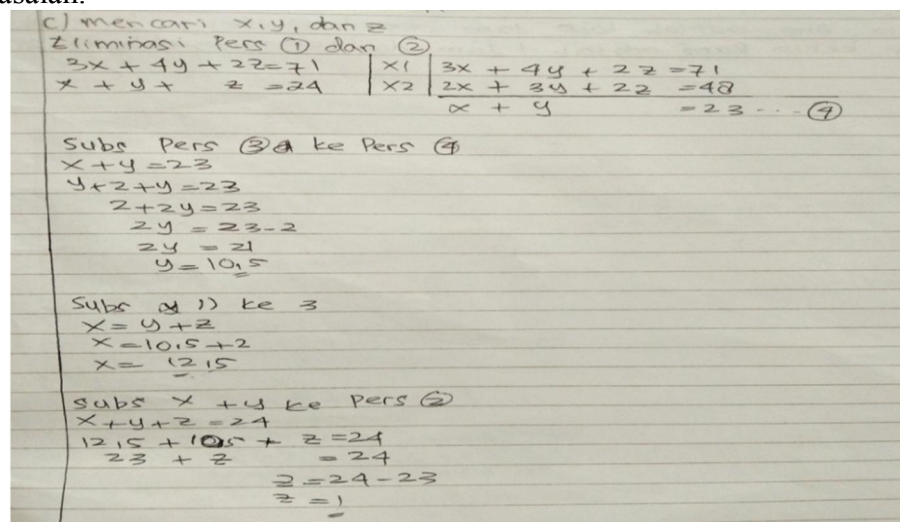 asalan.
c) mencari x, y, dan z
Eliminasi Pers ① dan ②
3x + 4y + 2z = 71 | x1 | 3x + 4y + 2z = 71
x + y + z = 24 | x2 | 2x + 3y + 2z = 48
x + y = 23 ... ④
Subs Pers ③ ke Pers ④
x + y = 23
y + 2 + y = 23
2 + 2y = 23
2y = 23 - 2
2y = 21
y = 10,5
Subs y ke 3
x = y + 2
x = 10,5 + 2
x = 12,5
subs x + y ke Pers ②
x + y + z = 24
12,5 + 10,5 + z = 24
23 + z = 24
z = 24 - 23
z = 1